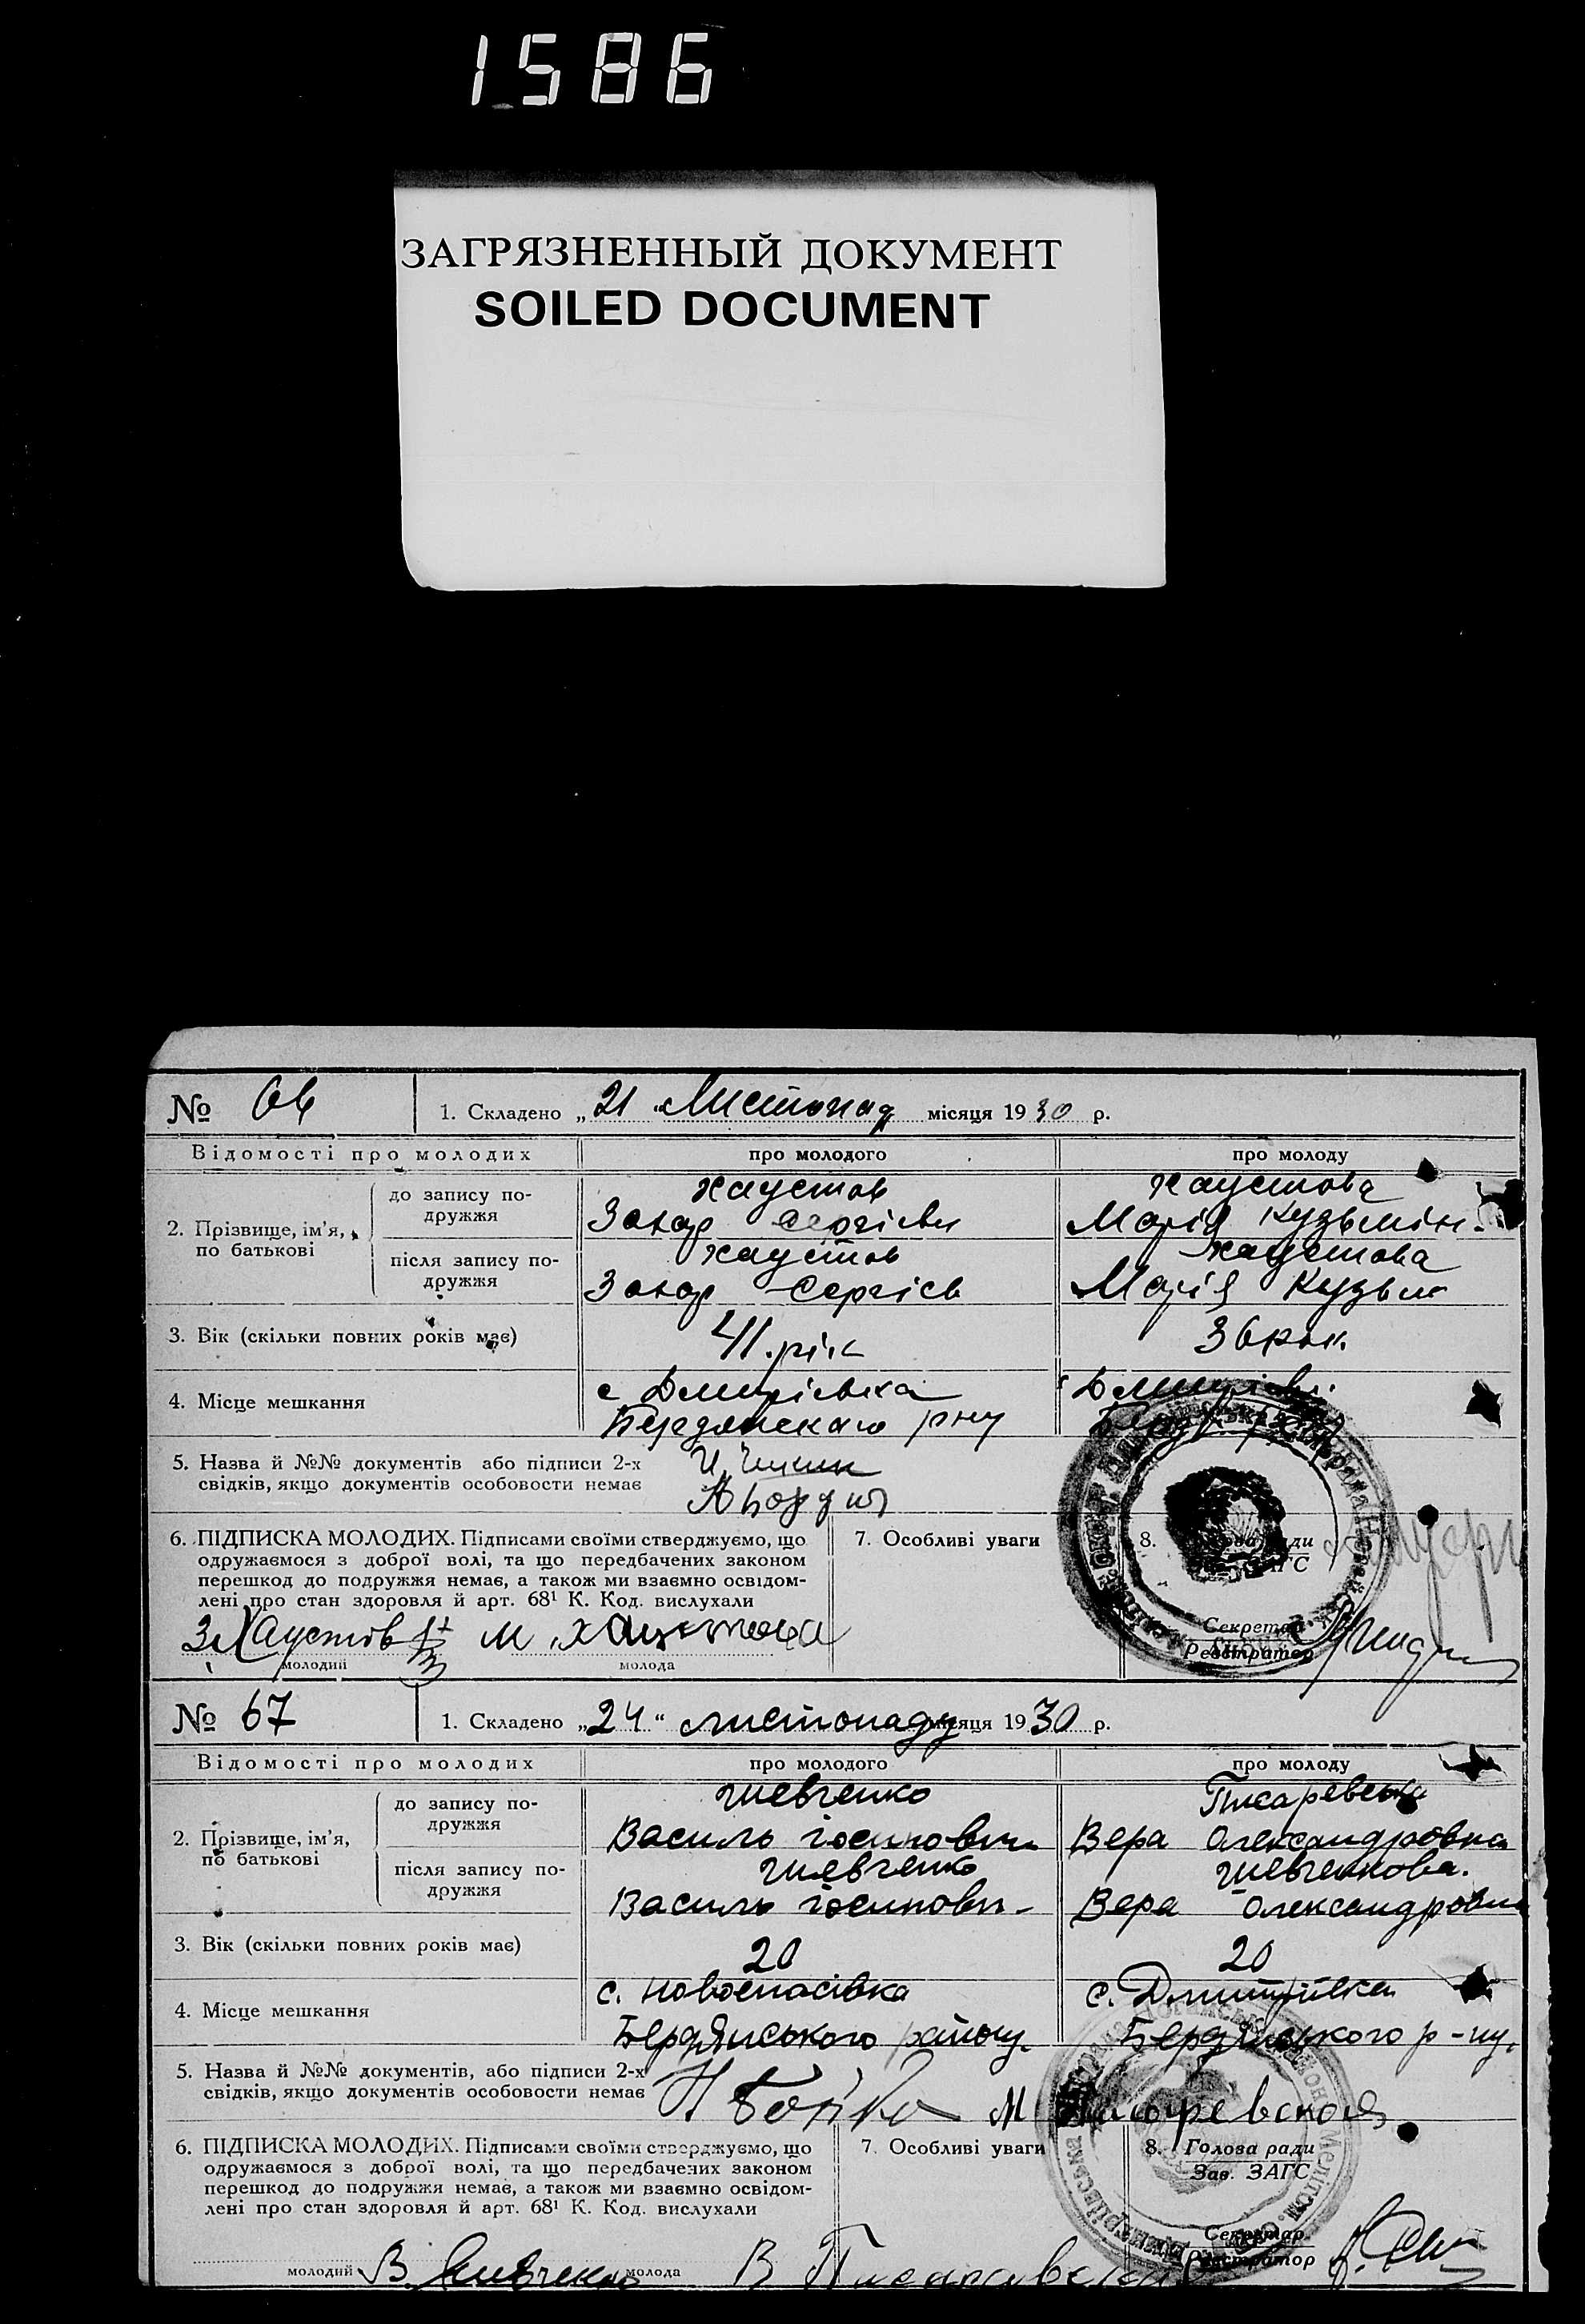 1586
ЗАГРЯЗНЕННЫЙ ДОКУМЕНТ
SOILED DOCUMENT
№ 66
1. Складено „21" Листопад місяця 1930 р.
Відомості про молодих
про молодого
про молоду
2. Прізвище, ім'я, по батькові
до запису по-
дружжя
Хаустов
Захар Сергієви
Хаустова
Марія Кузьмін.
після запису по-
дружжя
Хаустов
Захар Сергієв
Хаустова
Марія Кузьм
3. Вік (скільки повних років має)
41. рік
36 рок.
4. Місце мешкання
с Дмитрієвка
Бердянскаго рну
Дмитрієв.
5. Назва й №№ документів або підписи 2-х
свідків, якщо документів особовости немає
6. ПІДПИСКА МОЛОДИХ. Підписами своїми стверджуємо, що
одружаємося з доброї волі, та що передбачених законом
перешкод до подружжя немає, а також ми взаємно освідом-
лені про стан здоровля й арт. 68¹ К. Код. вислухали
З Хаустов
молодий
М. Хаустова
молода
7. Особливі уваги
8.
ради
ЗАГС
Секретар
Реєстратор
№ 67
1. Складено „24" листопаду місяця 1930 р.
Відомості про молодих
про молодого
про молоду
2. Прізвище, ім'я,
по батькові
до запису по-
дружжя
Шевченко
Василь іосипович
Писаревська
Вера Олександровна
після запису по-
дружжя
Шевченко
Василь іосипови-
Шевченкова.
Вера Олександровна
3. Вік (скільки повних років має)
20
20
4. Місце мешкання
с. Новоспасівка
Бердянського району.
с. Дмитрівка
Бердянського р-ну.
5. Назва й №№ документів, або підписи 2-х
свідків, якщо документів особовости немає
Н Бойко
М Писаревская
6. ПІДПИСКА МОЛОДИХ. Підписами своїми стверджуємо, що
одружаємося з доброї волі, та що передбачених законом
перешкод до подружжя немає, а також ми взаємно освідом-
лені про стан здоровля й арт. 68¹ К. Код. вислухали
молодий В. Шевченко
молода В Писаревская
7. Особливі уваги
8. Голова ради
Зав. ЗАГС
Секретар
Реєстратор